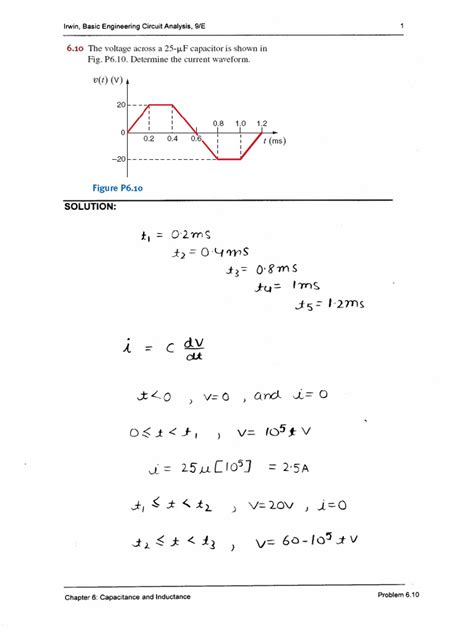 Irwin, Basic Engineering Circuit Analysis, 9/E 1
6.10 The voltage across a 25-μF capacitor is shown in
Fig. P6.10. Determine the current waveform.
v(t) (V)
20
0.8 1.0 1.2
0
0.2 0.4 0.6 t (ms)
−20
Figure P6.10
SOLUTION:
t₁ = 0.2ms
t₂ = 0.4ms
t₃ = 0.8ms
t₄ = 1ms
t₅ = 1.2ms
i = C dv/dt
t<0 , v=0 , and i=0
0≤t<t₁ , v= 10⁵t V
i = 25μ[10⁵] = 2.5A
t₁ ≤ t < t₂ , v=20V , i=0
t₂ ≤ t < t₃ , v= 60-10⁵t V
Chapter 6: Capacitance and Inductance Problem 6.10